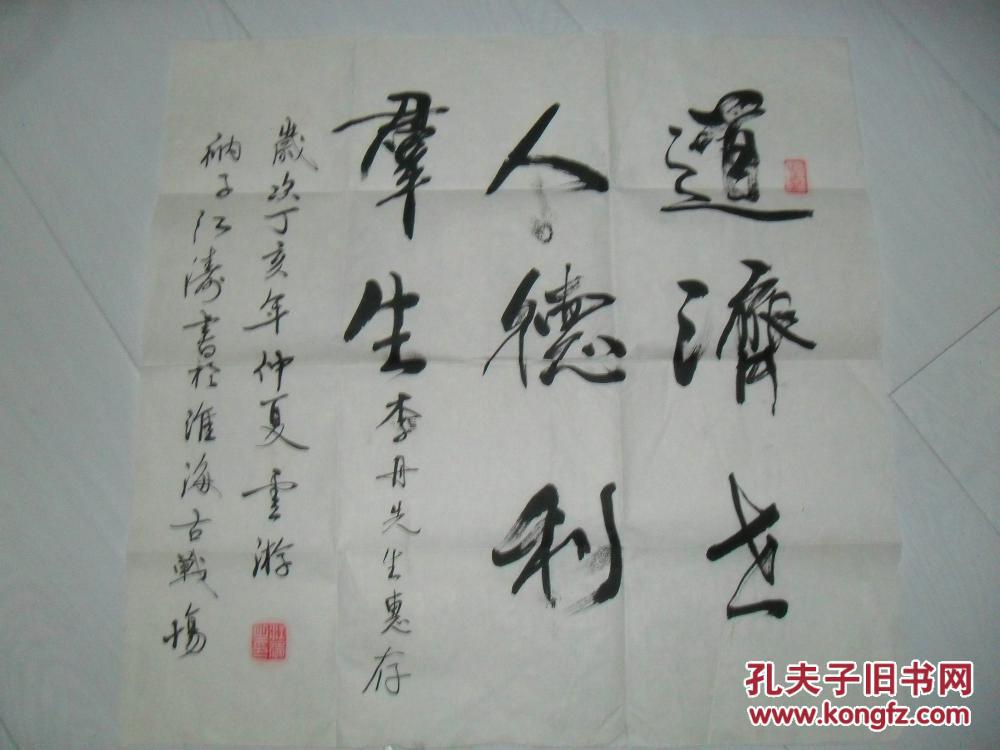 道濟世
人德利
羣生
李丹先生惠存
歲次丁亥年仲夏雲游
衲子江濤書於淮海古戰場
孔夫子旧书网
www.kongfz.com